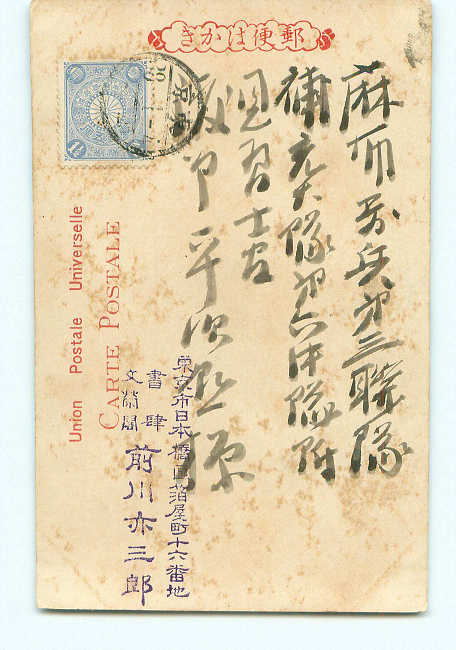 郵便はかき
麻布歩兵第三聯隊
補充大隊第六中隊附
習士官
平
Union Postale Universelle
CARTE POSTALE
東京市日本橋區箔屋町十六番地
書肆
前川亦三郎
1½